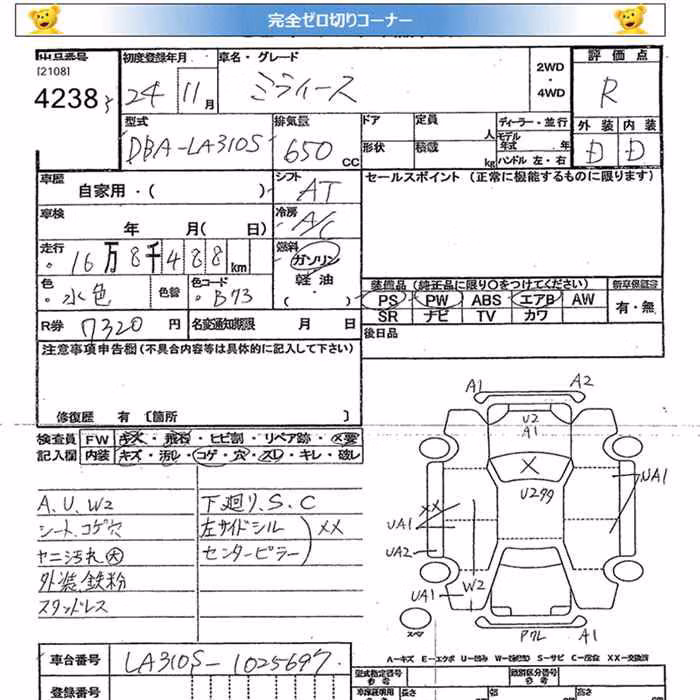 完全ゼロ切りコーナー
出品番号
[2108]
4238
初度登録年月
24 11月
車名・グレード
ミライース
2WD
・
4WD
評価点
R
型式
DBA-LA310S
排気量
650 CC
ドア
定員
人
形状
積載
kg
ディーラー・並行
モデル年式 年
ハンドル 左・右
外装 内装
D D
車歴
自家用・( )
シフト
AT
セールスポイント(正常に機能するものに限ります)
車検
年 月( 日)
冷房
A/C
走行
16万8千488km
燃料
ガソリン
軽油
・( )
色
水色
色替
色コード
B73
装備品(純正品に限り○をつけてください)
新車保証書
PS PW ABS エアB AW
有・無
SR ナビ TV カワ
R券 7320円
名変通知期限 月 日
後日品
注意事項申告欄(不具合内容等は具体的に記入して下さい)
修復歴 有〔箇所 〕
検査員
記入欄
FW キズ・飛石・ヒビ割・リペア跡・×要
内装 キズ・汚レ・コゲ・穴・スレ・キレ・破レ
A.U.W2
シート.コゲ穴
ヤニ汚れ大
外装.鉄粉
スタッドレス
下廻り.S.C
左サイドシル
センターピラー
XX
A1
A2
U2
A1
X
U2
UA1
XX
UA1
UA2
W2
UA1
スペア
A1
A-キズ E-エクボ U-凹み S-サビ C-腐食 XX-交換済
車台番号
LA310S-1025697
登録番号
型式指定番号
参考
類別区分番号
参考
長さ
幅
高さ